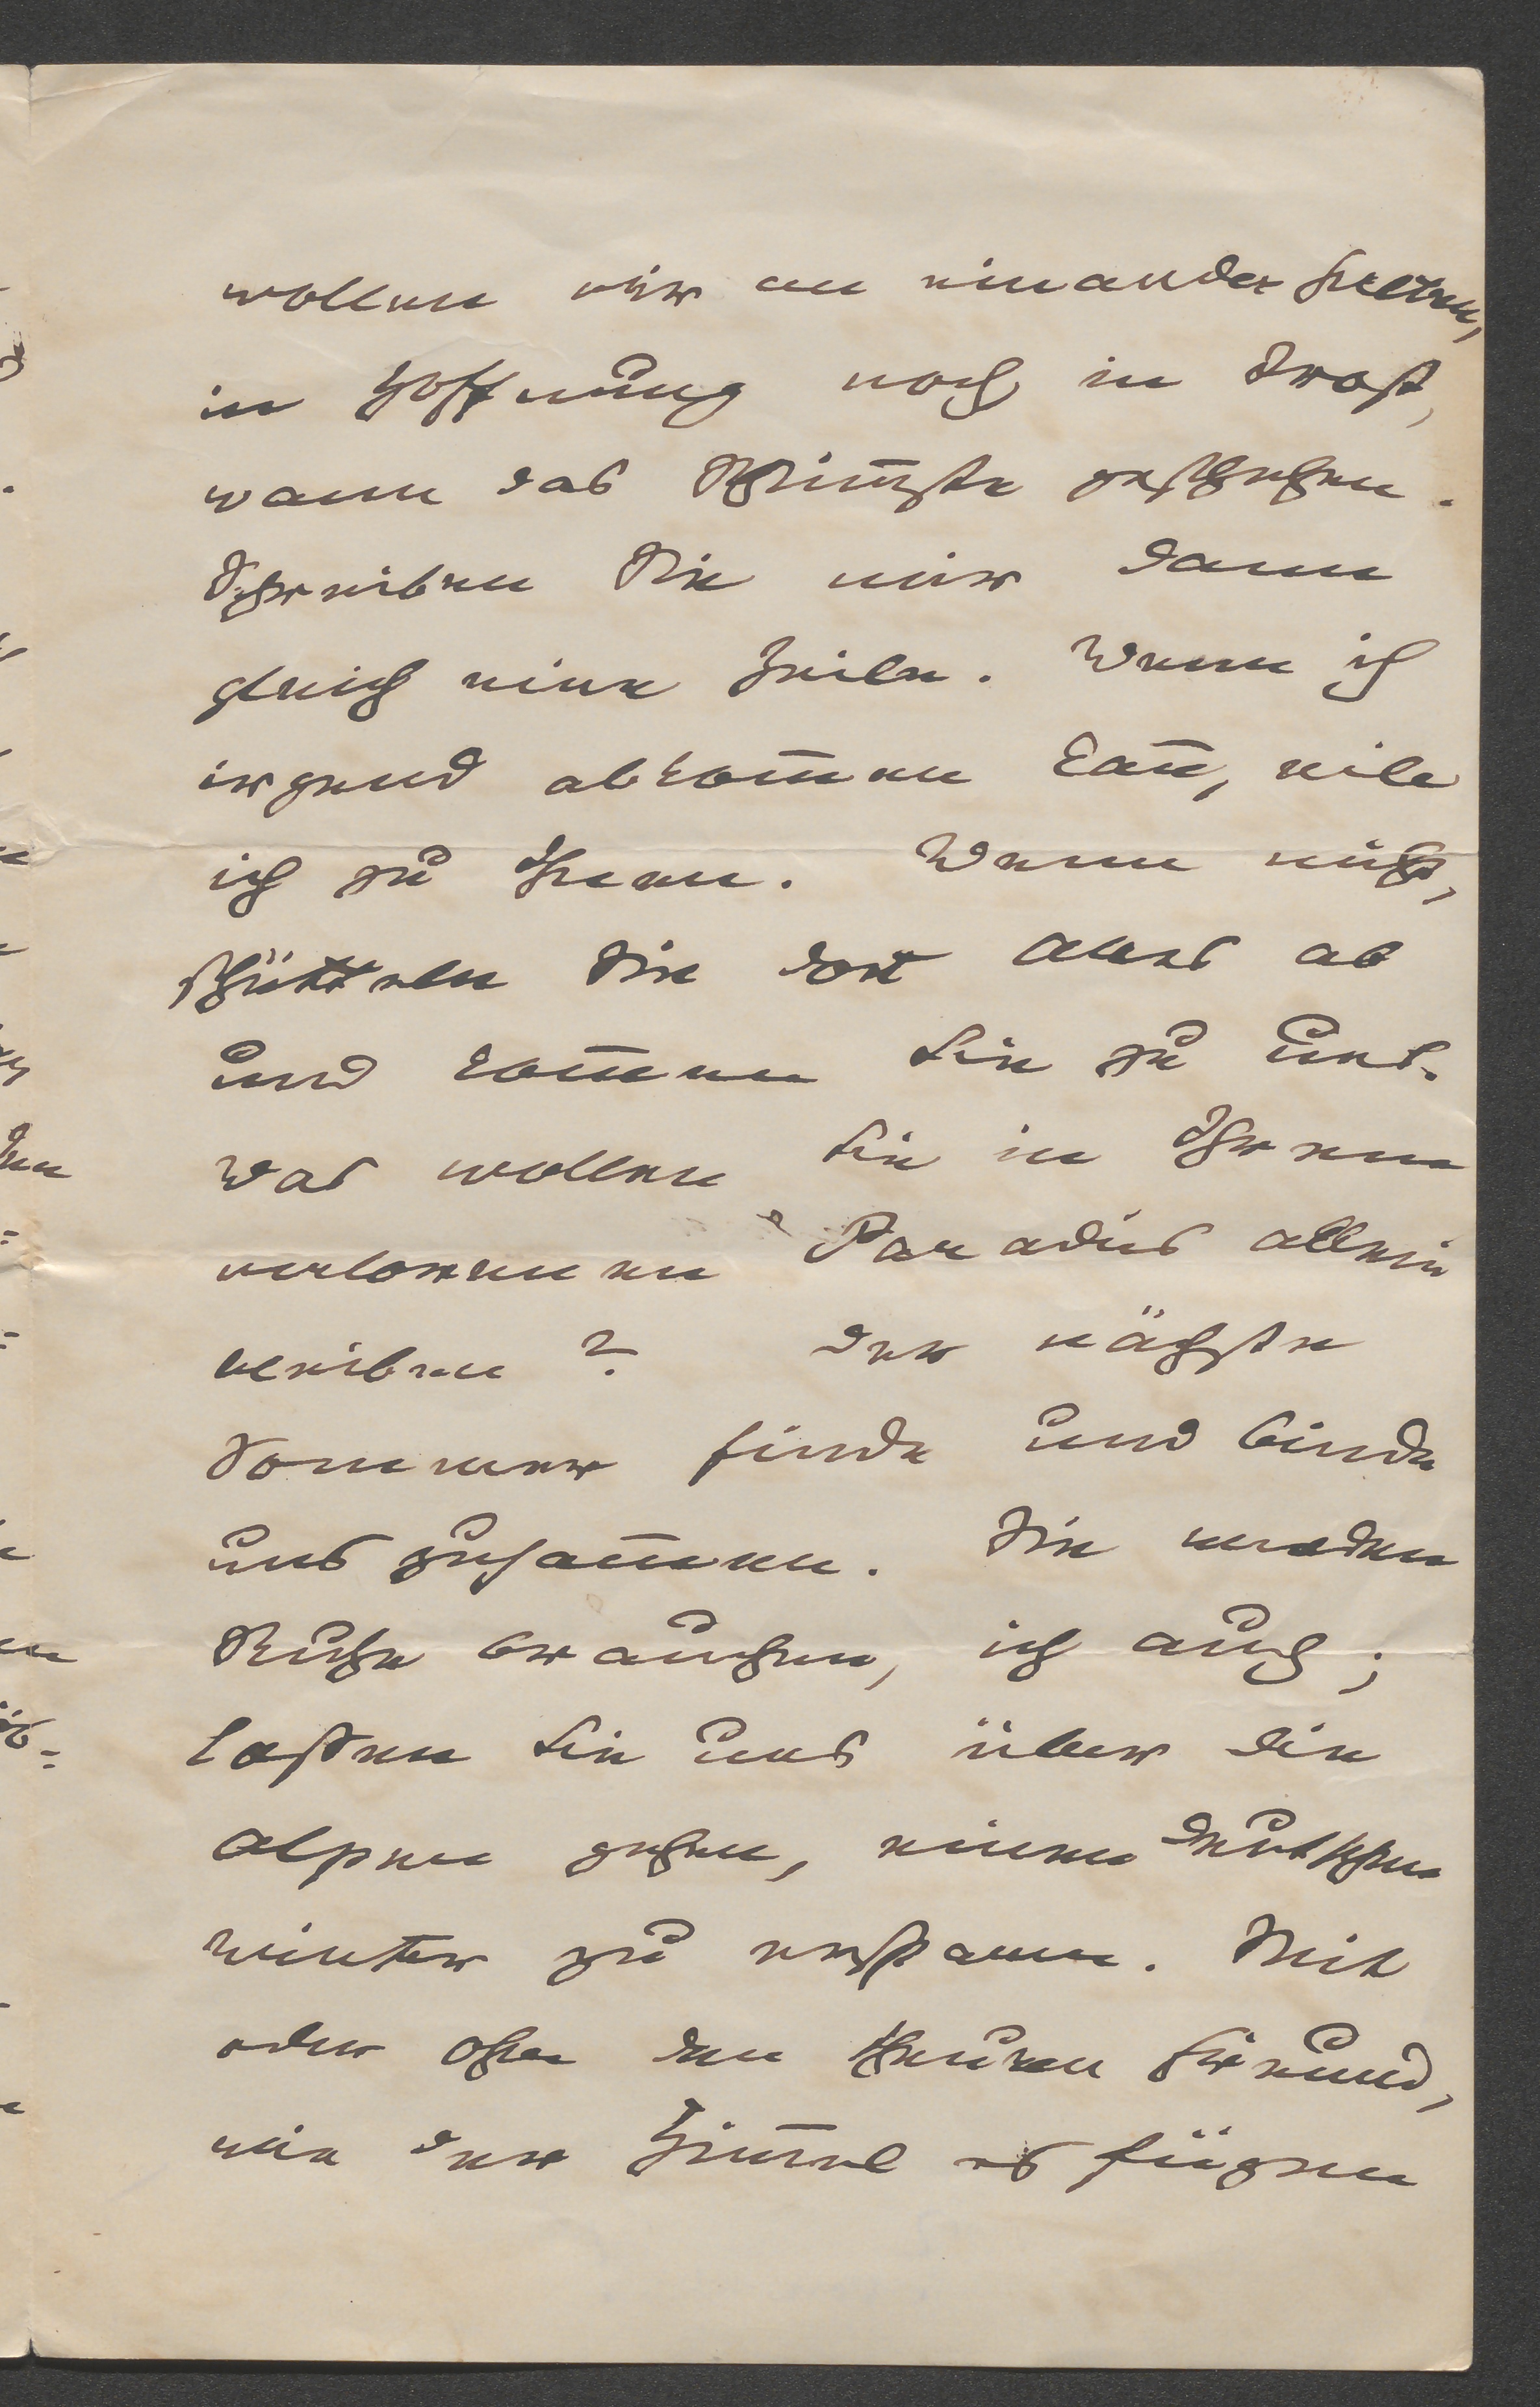 wollen wir an einander halten,
in Hoffnung noch in Trost,
wann das Schlim̅ste geschehen.
Schreiben Sie mir dann
gleich eine Zeile. Wenn ich
irgend abkom̅en kan̅, eile
ich zu Ihnen. Wenn nicht,
schütteln Sie dort alles ab
und kom̅en Sie zu uns.
Was wollen Sie in Ihrem
verlorenen Paradies allein
bleiben? Der nächste
Sommer finde und binde
uns zusam̅en. Sie werden
Ruhe brauchen, ich auch;
lassen Sie uns über die
Alpen gehen, einen deutschen
Winter zu ersparen. Mit
oder ohne den theuren Freund,
wie der Him̅el es fügen